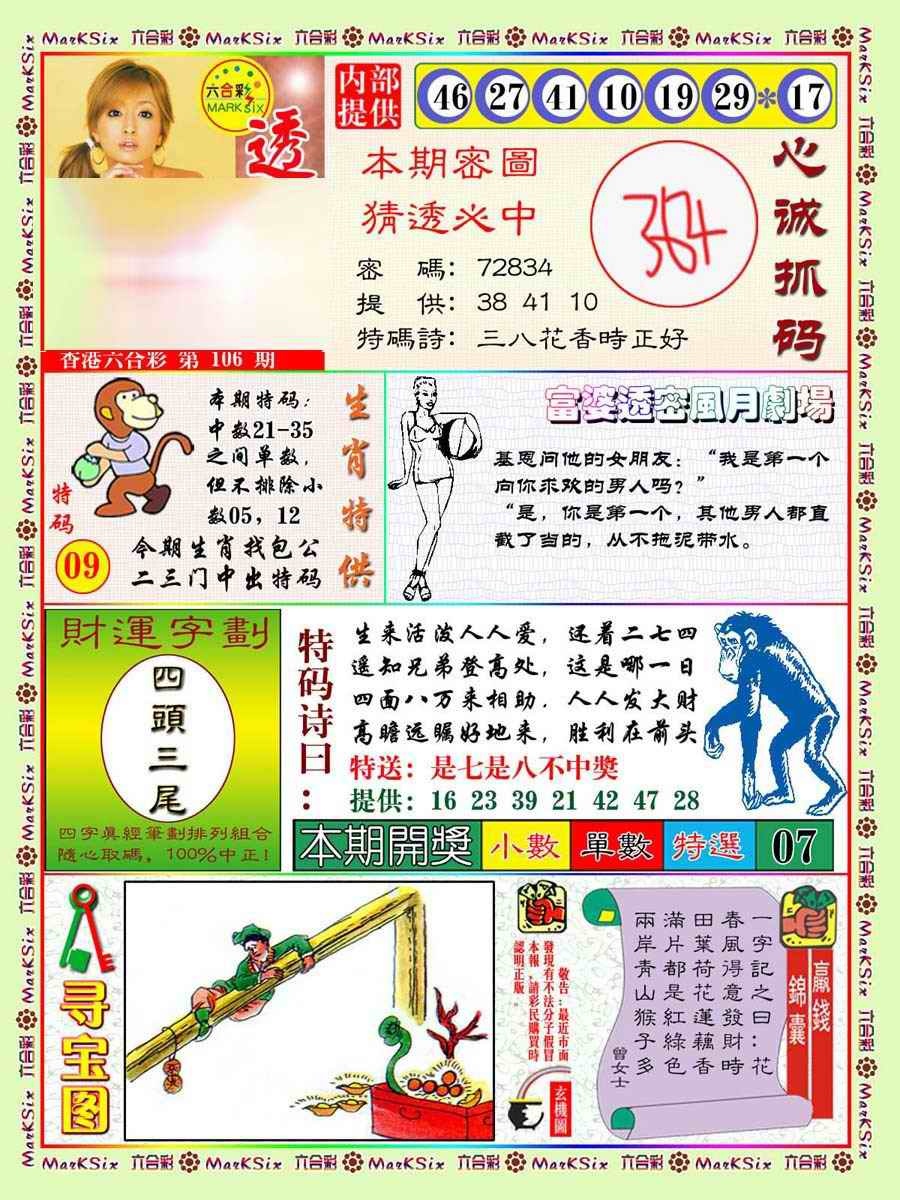 MarKSix 六合彩 MarKSix 六合彩 MarKSix 六合彩 MarKSix 六合彩 MarKSix 六合彩
六合彩
MARK six
透
内部
提供
46 27 41 10 19 29 * 17
本期密圖
猜透必中
密 碼：72834
提 供：38 41 10
特碼詩：三八花香時正好
心诚抓码
香港六合彩 第 106 期
特码
09
本期特码：
中数21-35
之间单数，
但不排除小
数05，12
今期生肖找包公
二三门中出特码
生肖特供
富婆透密風月劇場
基恩问他的女朋友：“我是第一个
向你求欢的男人吗？”
“是，你是第一个，其他男人都直
截了当的，从不拖泥带水。
財運字劃
四頭三尾
四字真經筆劃排列組合
隨心取碼，100%中正！
特码诗曰：
生来活泼人人爱，还着二七四
遥知兄弟登高处，这是哪一日
四面八万来相助，人人发大财
高瞻远瞩好地来，胜利在前头
特送：是七是八不中獎
提供：16 23 39 21 42 47 28
本期開獎 小數 單數 特選 07
寻宝图
敬告：最近市面
發現有不法分子假冒
本報，請彩民購買時
認明正版。
玄機圖
贏錢
錦囊
一字記之曰：花
春風得意發財時
田葉荷花蓮藕香
滿片都是紅綠色
兩岸青山猴子多
曾女士
MarKSix 六合彩 MarKSix 六合彩 MarKSix 六合彩 MarKSix 六合彩 MarKSix 六合彩